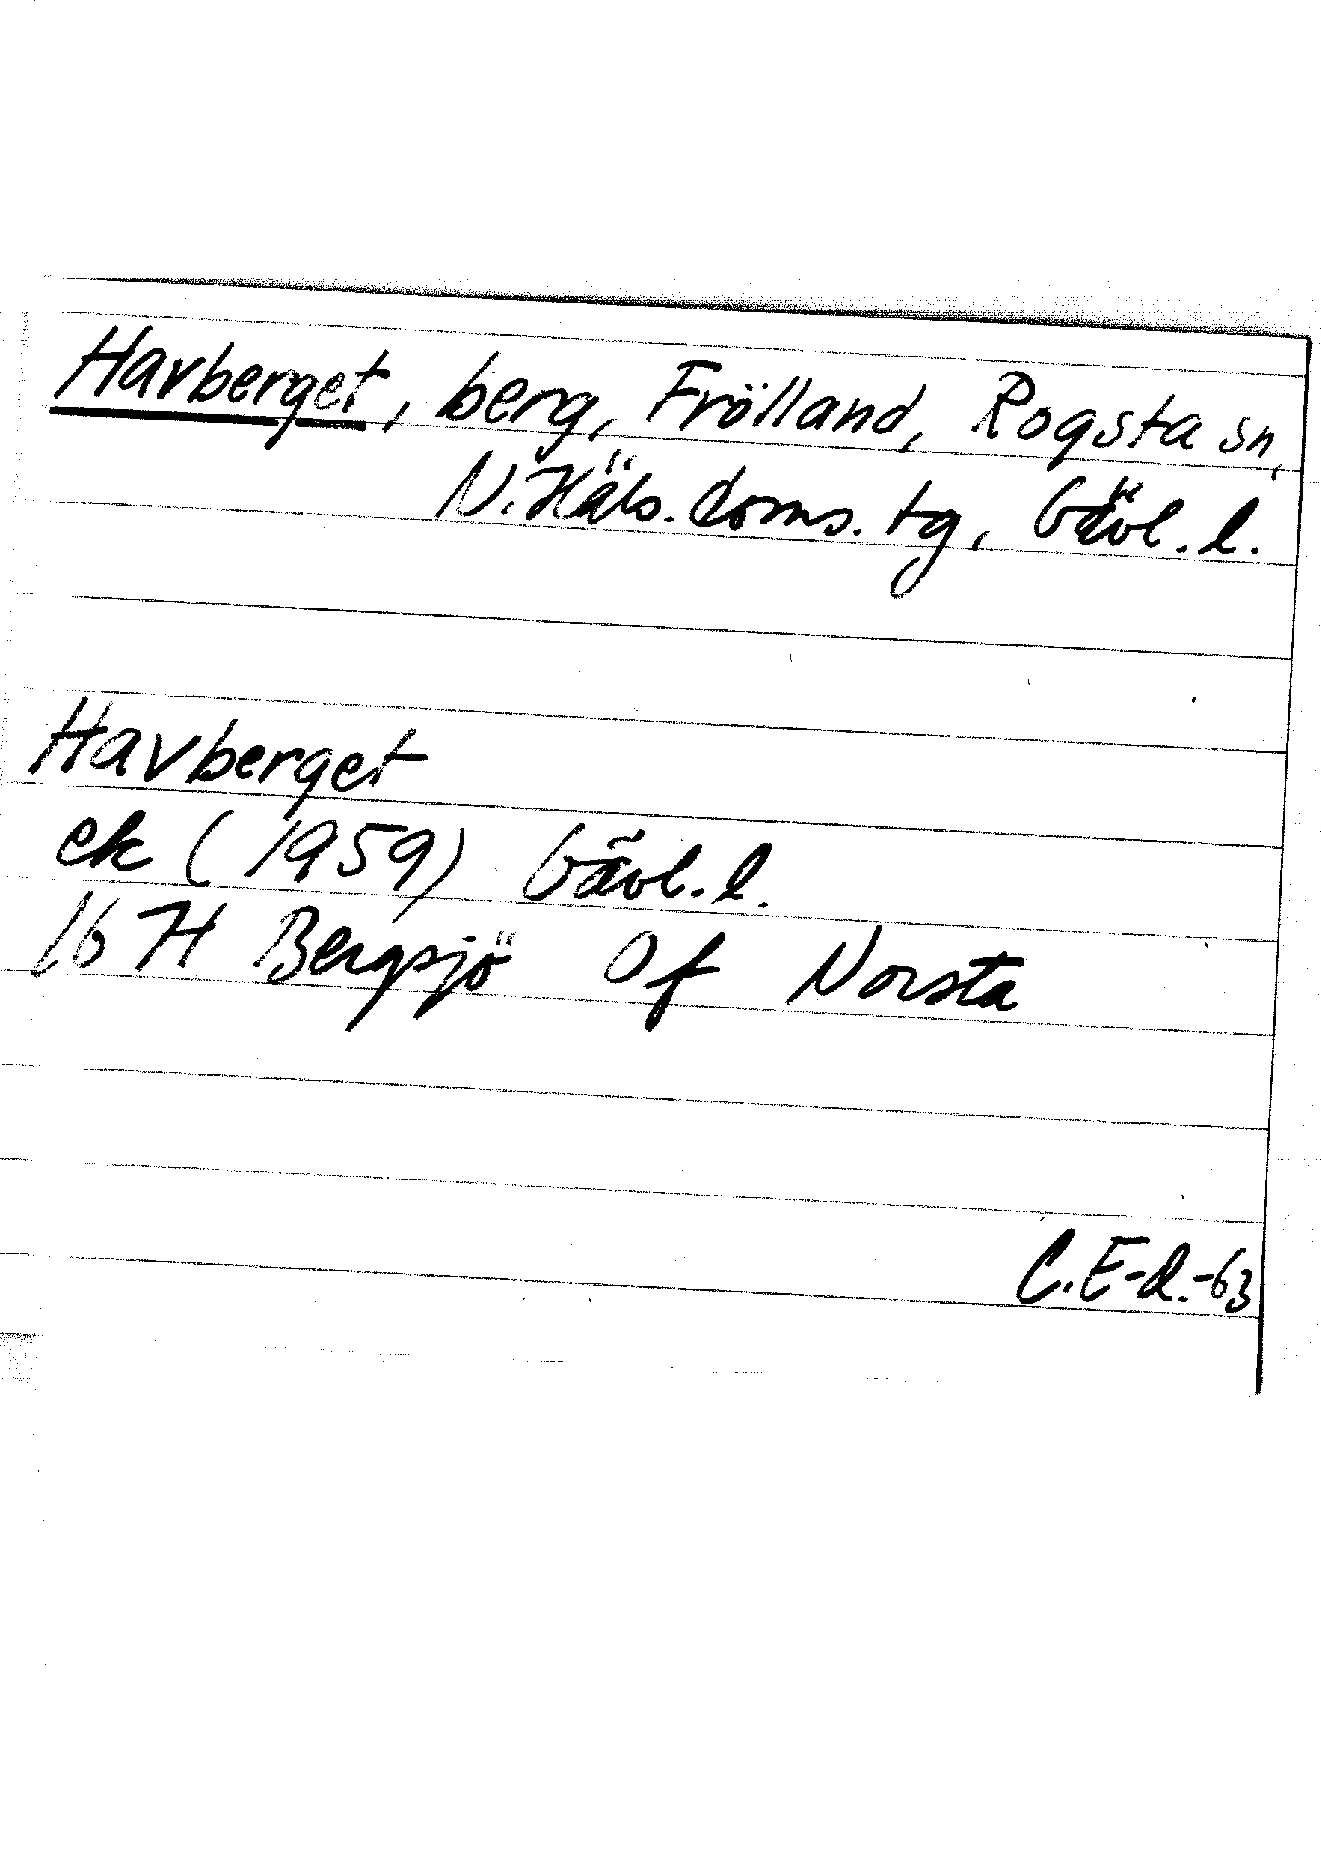 Havberget, berg, Frölland, Rogsta sn,
N. Häls. doms. tg, Gävl. l.
Havberget
ek (1959) Gävl. l.
16 H Bergsjö Of Norsta
C. E-d. -63